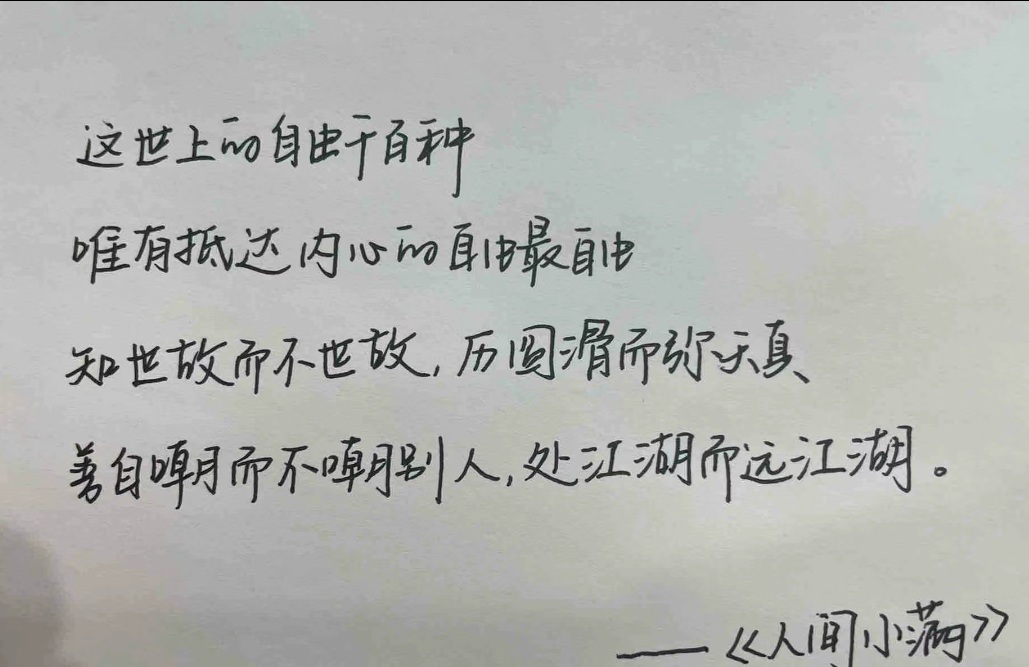 这世上的自由千百种
唯有抵达内心的自由最自由
知世故而不世故,历圆滑而弥天真、
善自嘲而不嘲别人,处江湖而远江湖。
——《人间小满》